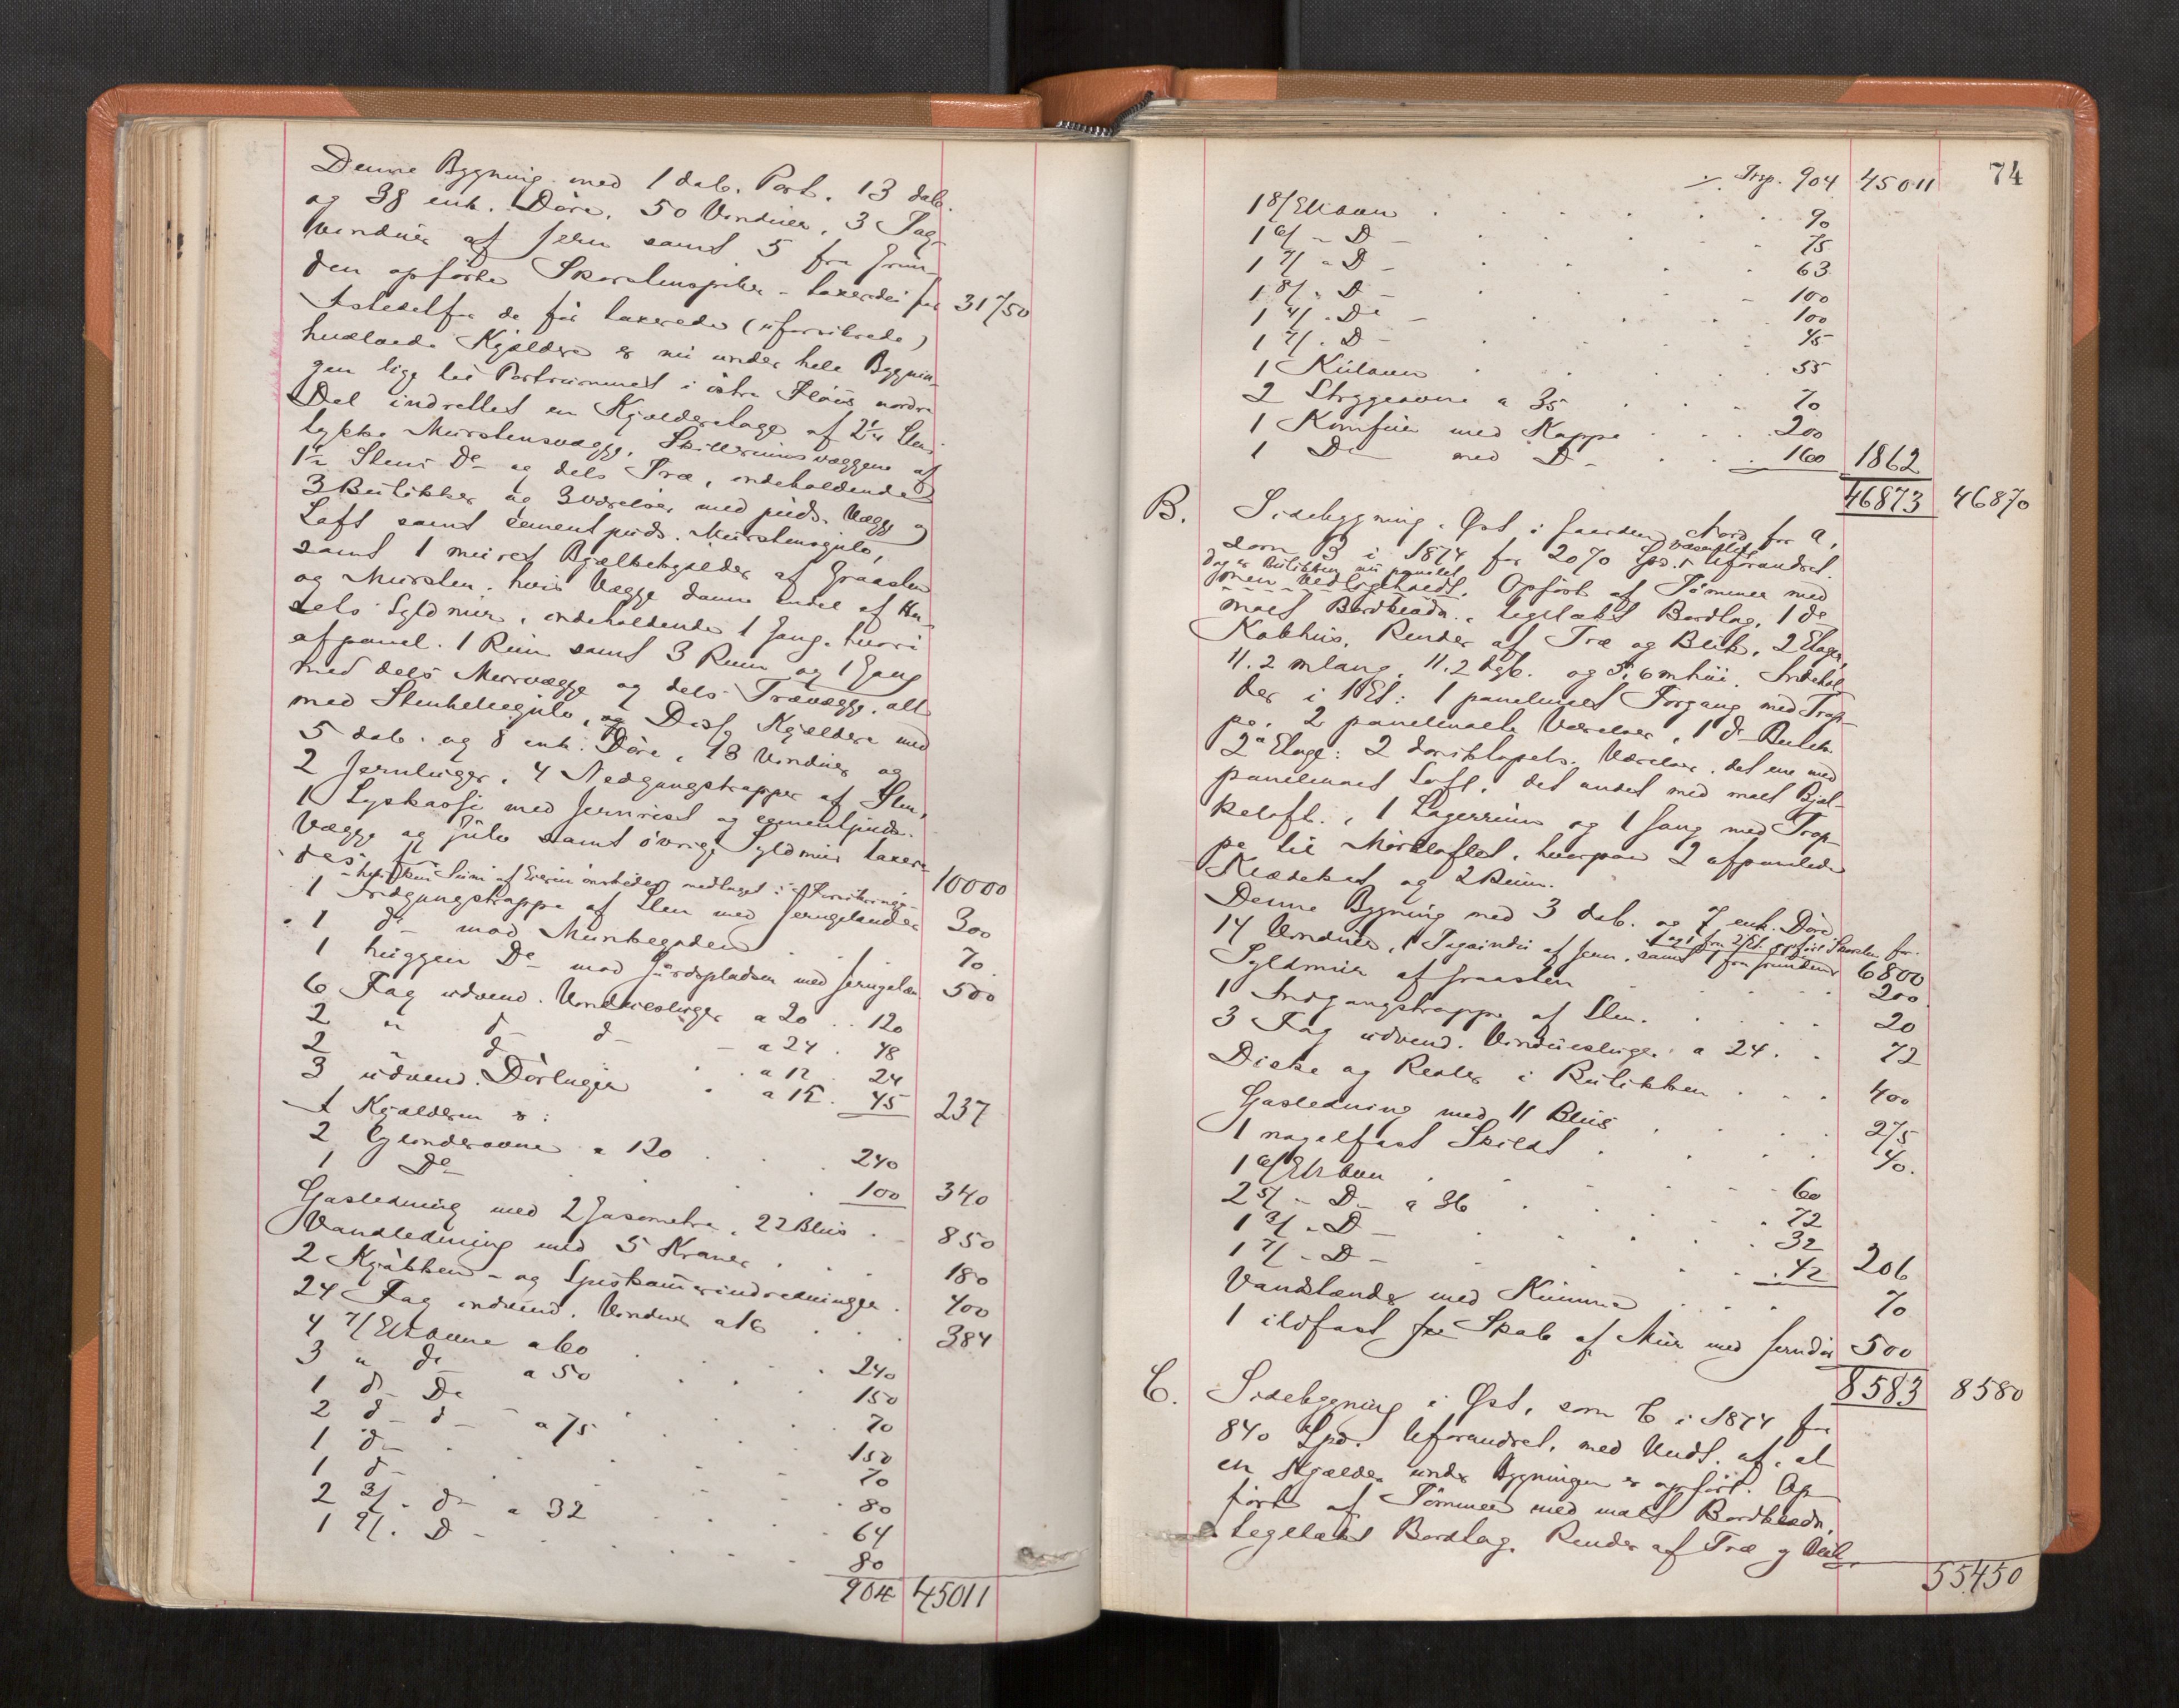 Denne Bygning med 1 dob. Port, 13 dob.
og 38 enk. Döre, 50 Vinduer, 3 Tag-
vinduer af Jern samt 5 fra Grun-
den opförte Skorstenspiber - taxeredes for 31750
Istedetfor de för taxerede (uforsikrede)
hvælvede Kjeldere er nu under hele Bygnin-
gen lige til Portrummet i østre Flöis nordre
Del indrettet en Kjelderetage af 2 1/4 Stens
tykke Murstensvægge, Skillerumsvæggene af
1 1/2 Stens Do og dels Træ, indeholdende
3 Butikker og 3 Værelser med puds. Vægge og
Loft samt cementpuds. Murstensgulv,
samt 1 muret Bjælkekjelder af Graasten
og Mursten, hvis Vægge danne endel af Hu-
sets Syldmur, indeholdende 1 Gang, hvori
afpanel. 1 Rum samt 3 Rum og 1 Gang
med dels Murvægge og dels Trævægge, alt
med Stenhellegulv, og Disse Kjeldere med
5 dob. og 8 enk. Döre, 18 Vinduer og
2 Jernluger, 4 Nedgangstrapper af Sten,
1 Lyskasse med Jernrist og cementpuds.
Vægge og Gulv samt övrige Syldmur taxere-
des for 10000
hvilken Sum af Eieren önskedes medtaget i Forsikringen
1 Indgangstrappe af Sten med Jerngelænder 300
1 do mod Munkegaden . . . 70
1 huggen Do mod Gårdspladsen med Jerngelæn 500
6 Fag udvend. Vinduesluger a 20 . . 120
2 " d - d - a 24 . 48
2 d - . . a 12 . 24
3 udvend. Dörluger . a 15 . 45 237
I Kjelderen er :
2 Cylinderovne a 120 . . . 240
1 Do . . . . . 100 340
Gasledning med 2 Gasometre, 22 Blus . - 850
Vandledning med 5 Kraner . . . 180
2 Kjökken - og Spiskamerindredninger . 400
24 Fag indvend. Vinduer a 16 . . . 384
4 7/ Et. Ovne a 60 . . . . 240
3 " do a 50 . . . 150
1 d - Do - . . . . 70
2 d - d - a 75 . . . 150
1 d - . . . . . 70
1 d - . . . . . 80
2 3/ . d - a 32 . . . . 64
1 9/ . D - . . . . . 80
904 45011
74
./. Trsp. 904 45011
1 8/ Et. Ovn . . . . . . 90
1 6/ - D - . . . . 75
1 7/ - D - . . . . 63
1 8/ . D - . . . . 100
1 4/ . Do - . . . 100
1 7/ . D - . . . . 45
1 Kulovn . . . . . 55
2 Strygeovne a 35 . . . 70
1 Komfur med Kappe . . . 200
1 Do med D - . . . 160 1862
46873 46870
B. Sidebygning, Øst i Gaarden, Nord for A,
som B i 1874 for 2070 Spd. væsentlig uforandret.
dog er Butikken nu panelet
men vedligeholdt. Opfört af Tömmer med
malt Bordklædn., tegllakt Bordtag, 1 do
Kobhus, Render af Træ og Blik, 2 Etager,
11.2 m lang, 11.2 dyb. og 5,6 m höi. Indehol-
der i 1 Et: 1 panelmalt Forgang med Trap-
pe, 2 panelmalte Værelser, 1 do Butik.
2n Etage: 2 doriktapets. Værelser, det ene med
panelmalt Loft, det andet med malt Bjæl-
keloft, 1 Lagerrum og 1 Gang med Trap-
pe til Mörkloftet, hvorpaa 2 afpanelede
Klædekot og 2 Rum.
Denne Bygning med 3 dob. og 7 enk. Döre
14 Vinduer, 1 Tagvindu af Jern, samt 1 fra Grunden
og 1 fra 2 Et. opfört Skorsten for 6800
Syldmur af Graasten . . . . . 200
1 Indgangstrappe af Sten . . . . 20
3 Fag udvend. Vinduesluger a 24 . . 72
Diske og Reoler i Butikken . . . 400
Gasledning med 11 Blus . . . . 275
1 nagelfast Skildt . . . . 40.
1 6/ Et. Ovn . . . . . - 60
2 5/ - D - a 36 . . . . 72
1 3/ . D - . . . . . 32
1 7/ - D - . . . . 42 206
Vandstænder med Kumme . . . . 70
1 ildfast Skab af Mur med Jerndör 500
8583 8580
C. Sidebygning i Øst, som C i 1874 for
840 Spd. Uforandret, med Undt. af, at
en Kjelder under Bygningen er opfört. Op-
fört af Tömmer med malt Bordklædn.,
teglakt Bordtag, Render af Træ og Blik,
55450